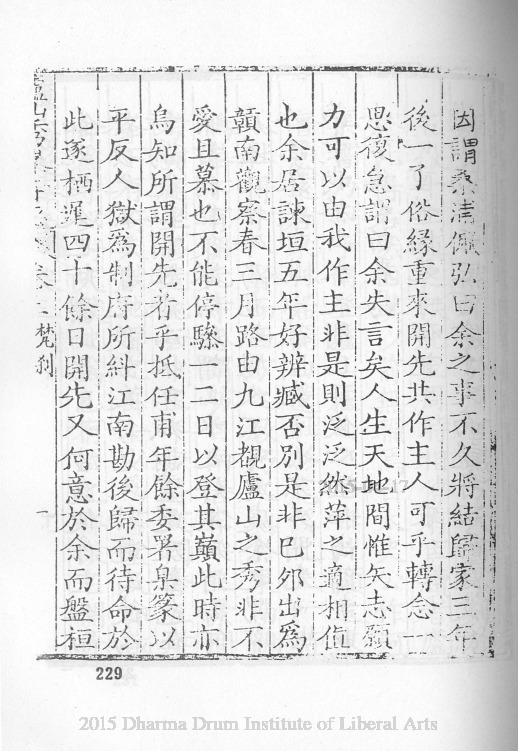 因謂桑清佩弘曰余之事不久將結歸家三年
後一了俗緣重來開先共作主人可乎轉念一
思復急謂曰余失言矣人生天地間惟矢志願
力可以由我作主非是則泛泛然萍之適相值
也余居諫垣五年好辨臧否別是非已外出爲
贛南觀察春三月路由九江覩廬山之秀非不
愛且慕也不能停驂一二日以登其巔此時亦
烏知所謂開先若乎抵任甫年餘委署臬篆以
平反人獄爲制府所糾江南勘後歸而待命於
此遂栖遲四十餘日開先又何意於余而盤桓
廬山 卷二 梵刹 一
229
2015 Dharma Drum Institute of Liberal Arts